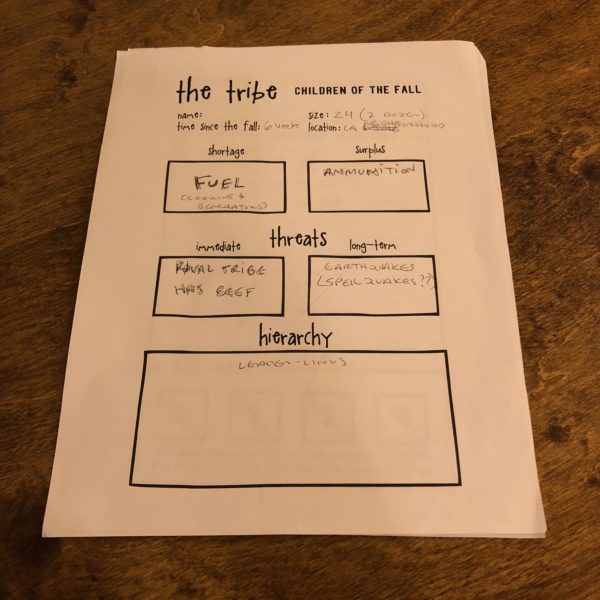 the tribe CHILDREN OF THE FALL
name: size: 24 (2 DOZEN)
time since the fall: 6 weeks location: LA NEIGHBORHOOD
shortage surplus
FUEL
(COOKING &
GENERATORS)
AMMUNITION
threats
immediate long-term
RIVAL TRIBE
HAS BEEF
EARTHQUAKES
(SPELL QUAKES??)
hierarchy
LEADER - LINUS